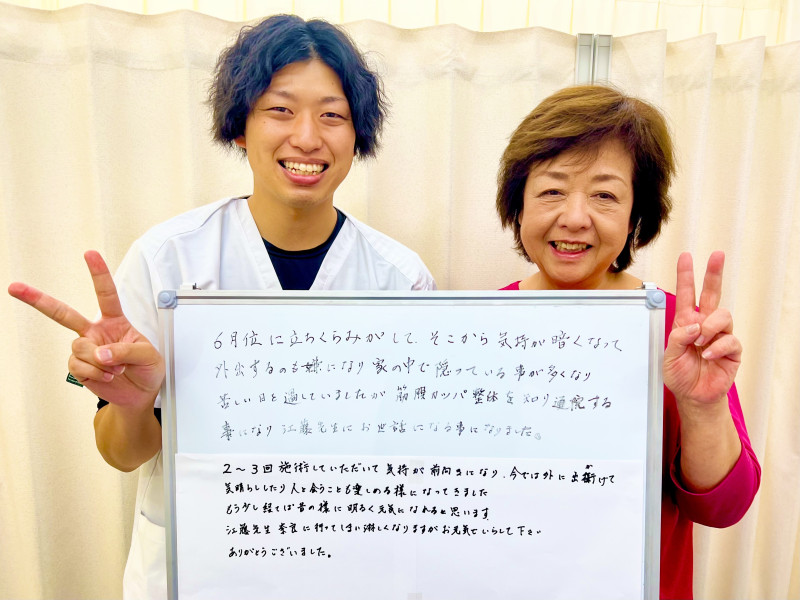 6月位に立ちくらみがして、そこから気持が暗くなって
外出するのも嫌になり家の中で隠っている事が多くなり
苦しい日を過していましたが筋膜カッパ整体を知り通院する
事になり江藤先生にお世話になる事になりました。
2〜3回施術していただいて気持が前向きになり、今では外に出掛けて
気晴らししたり人と会うことも楽しめる様になってきました
もう少し経てば昔の様に明るく元気になれると思います。
江藤先生 奈良に行ってしまい淋しくなりますがお元気でいらして下さい
ありがとうございました。